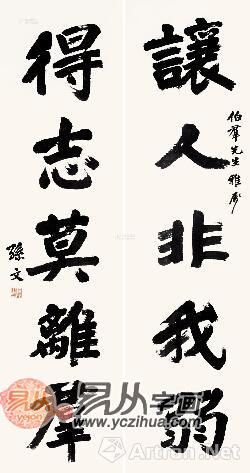 讓人非我弱
伯羣先生雅屬
得志莫離羣
孫文
易从字画
www.yczihua.com
Artron.Net